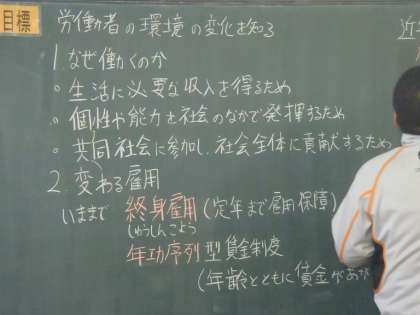 目標
労働者の環境の変化を知る
1.なぜ働くのか
○生活に必要な収入を得るため
○個性や能力を社会のなかで発揮するため
○共同社会に参加し、社会全体に貢献するため
2.変わる雇用
いままで 終身雇用(定年まで雇用保障)
しゅうしんこよう
年功序列型賃金制度
(年齢とともに賃金があが
近